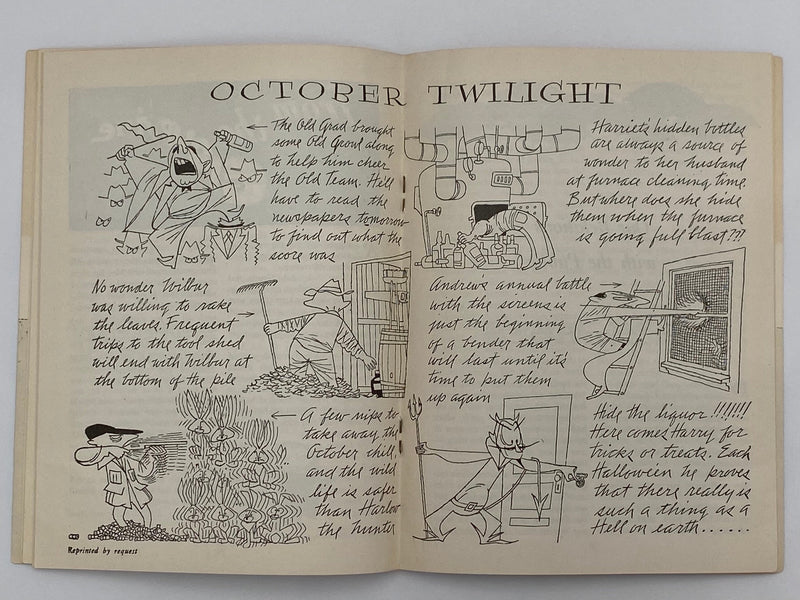 OCTOBER TWILIGHT
The Old Grad brought
some Old Growl along
to help him cheer
the Old Team. He'll
have to read the
newspapers tomorrow
to find out what the
score was
No wonder Wilbur
was willing to rake
the leaves. Frequent
trips to the tool shed
will end with Wilbur at
the bottom of the pile
A few nips to
take away the
October chill
and the wild
life is safer
than Harlow
the hunter
Reprinted by request
Harriet's hidden bottles
are always a source of
wonder to her husband
at furnace cleaning time.
But where does she hide
them when the furnace
is going full blast???
Andrew's annual battle
with the screens is
just the beginning
of a bender that
will last until it's
time to put them
up again
Hide the liquor !!!!!!!
Here comes Harry for
tricks or treats. Each
Halloween he proves
that there really is
such a thing as a
Hell on earth......